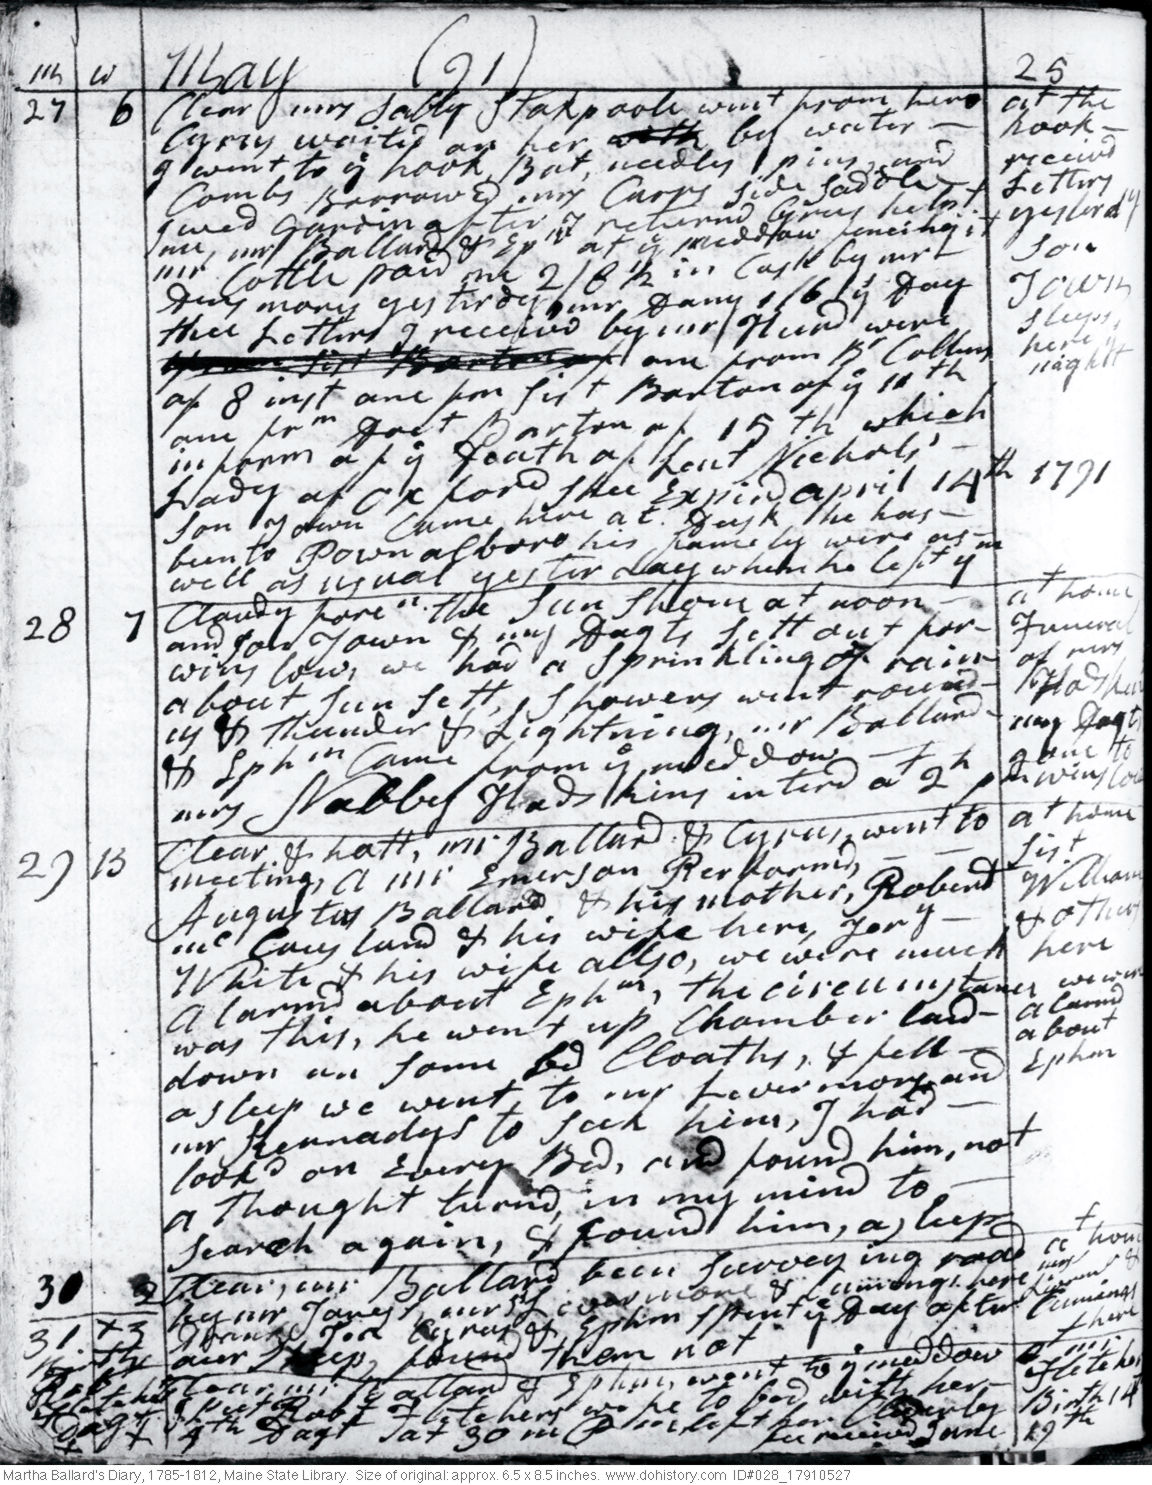 mh w May (91) 25
27 6 Clear mrs Sally Stakpoole went from here
Cyrus waited on her by water
I went to ye hook, Bot, needles, pins, and
Combs Borrowed mrs Carrs Side Saddle
Gardin after I returnd Cyrus helpt
me, mr Ballard & Epm at ye meddow fencing it
mr Cottle paid me 2/8 in Cash by mr
yesterday, mr Dany 1/6 ye Day
thee Letters I received by mr Hurd were
one from Br Collins
of 8 inst one from Sist Barton of ye 11th
one frm Doct Barton of 15th which
inform of ye Death of Leut Nichols'
Lady of Oxford Shee Expird april 14th 1791
Son Town Came here at Dusk he has
been to Pownalboro his family were as
well as usual yesterday when he left ym
at the
hook
received
Letters
yesterdy
Son
Town
sleeps
here
night
28 7 Cloudy foren. the Sun Shone at noon
and Son Town & my Dagts sett out for
winslow, we had a Sprinkling of rain
about Sun Sett, Showers went round
us & thunder & Lightning, mr Ballard
& Ephm Came from ye meddow
mrs Nabby Hodskins interd at 2 h pm
at home
Funeral
of mrs
Hodskins
my Dagts
gone to
winslow
29 B Clear & hott, mr Ballard & Cyrus went to
meeting, A mr Emerson Performd,
Augustus Ballard & his mother, Robert
mc Causland & his wife here, Jery
White & his wife allso, we were much
Alarmd about Ephm, The circumstance
was this, he went up Chamber laid
down on some bed Cloaths, & fell
asleep we went to mr Livermores and
mr Kennadys to seek him, I had
lookd on Every Bed, and found him, not
a thought turnd, in my mind to
search again, & found him, asleep
at home
Sist
William
& others
here
we were
alarmd
about
Ephm
30 2 Clear, mr Ballard been surveying road
by mr Jones, mrs Livermore & Cummings here
at home
mrs
Livermore &
Cummings
here
31 3 Cyrus & Ephm spent ye Day after
our sheep, found them not
Clear, mr Ballard & Ephm went to ye meddow
I put Robt Fletchers wife to bed with her
4th Dagt at 30 m
received June
Fletcher
Birth 14
19th
Birth
Robt
Fletchers
Dagt
Martha Ballard's Diary, 1785-1812, Maine State Library. Size of original: approx. 6.5 x 8.5 inches. www.dohistory.com ID#028_17910527